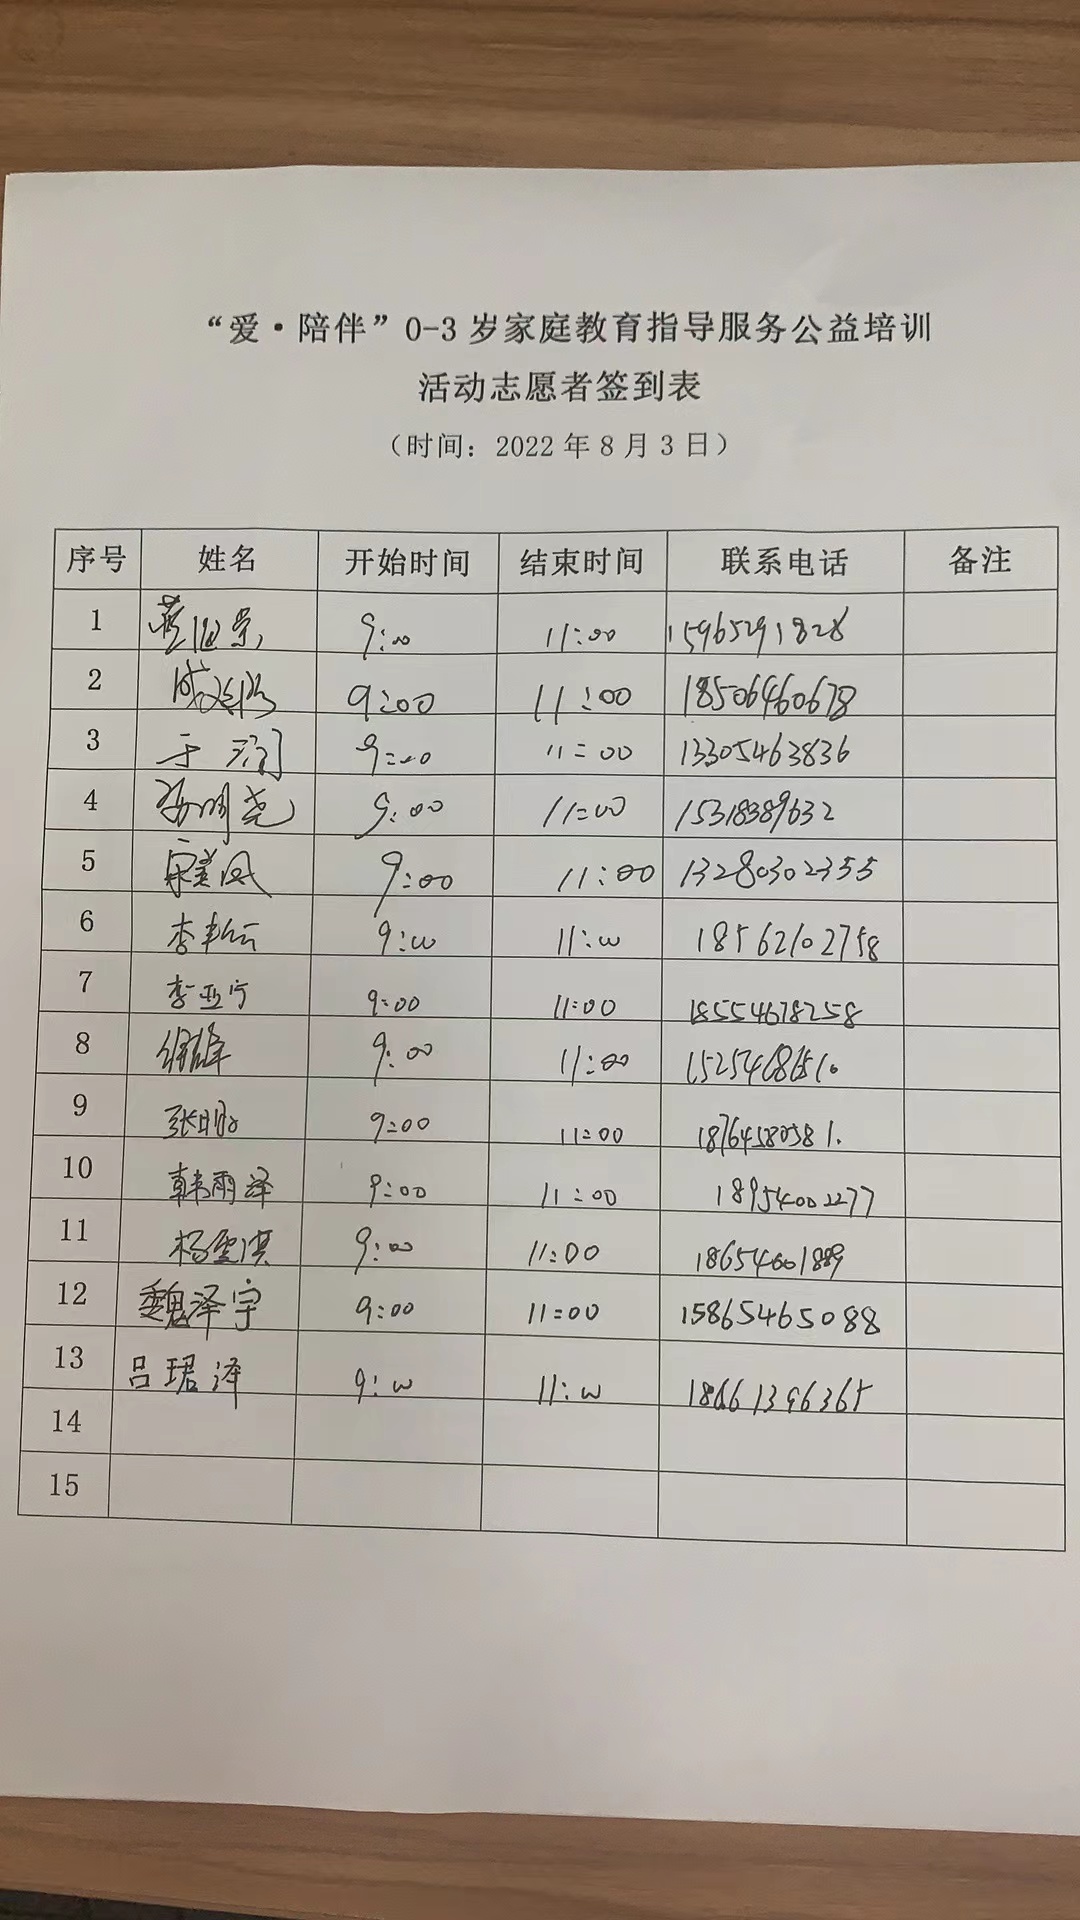 “爱·陪伴”0-3岁家庭教育指导服务公益培训
活动志愿者签到表
（时间：2022年8月3日）
序号 姓名 开始时间 结束时间 联系电话 备注
1 9:00 11:00 15965291828
2 9:00 11:00 18506460678
3 于 9:00 11:00 13305463836
4 明尧 9:00 11:00 15318389632
5 宋美凤 9:00 11:00 13280302355
6 李 9:00 11:00 18562102758
7 李亚宁 9:00 11:00 18554678258
8 9:00 11:00
9 张明 9:00 11:00 18764580581.
10 韩雨泽 9:00 11:00 18954002277
11 杨雯淇 9:00 11:00 18654001889
12 魏泽宇 9:00 11:00 15865465088
13 吕珺泽 9:00 11:00 18661396365
14
15